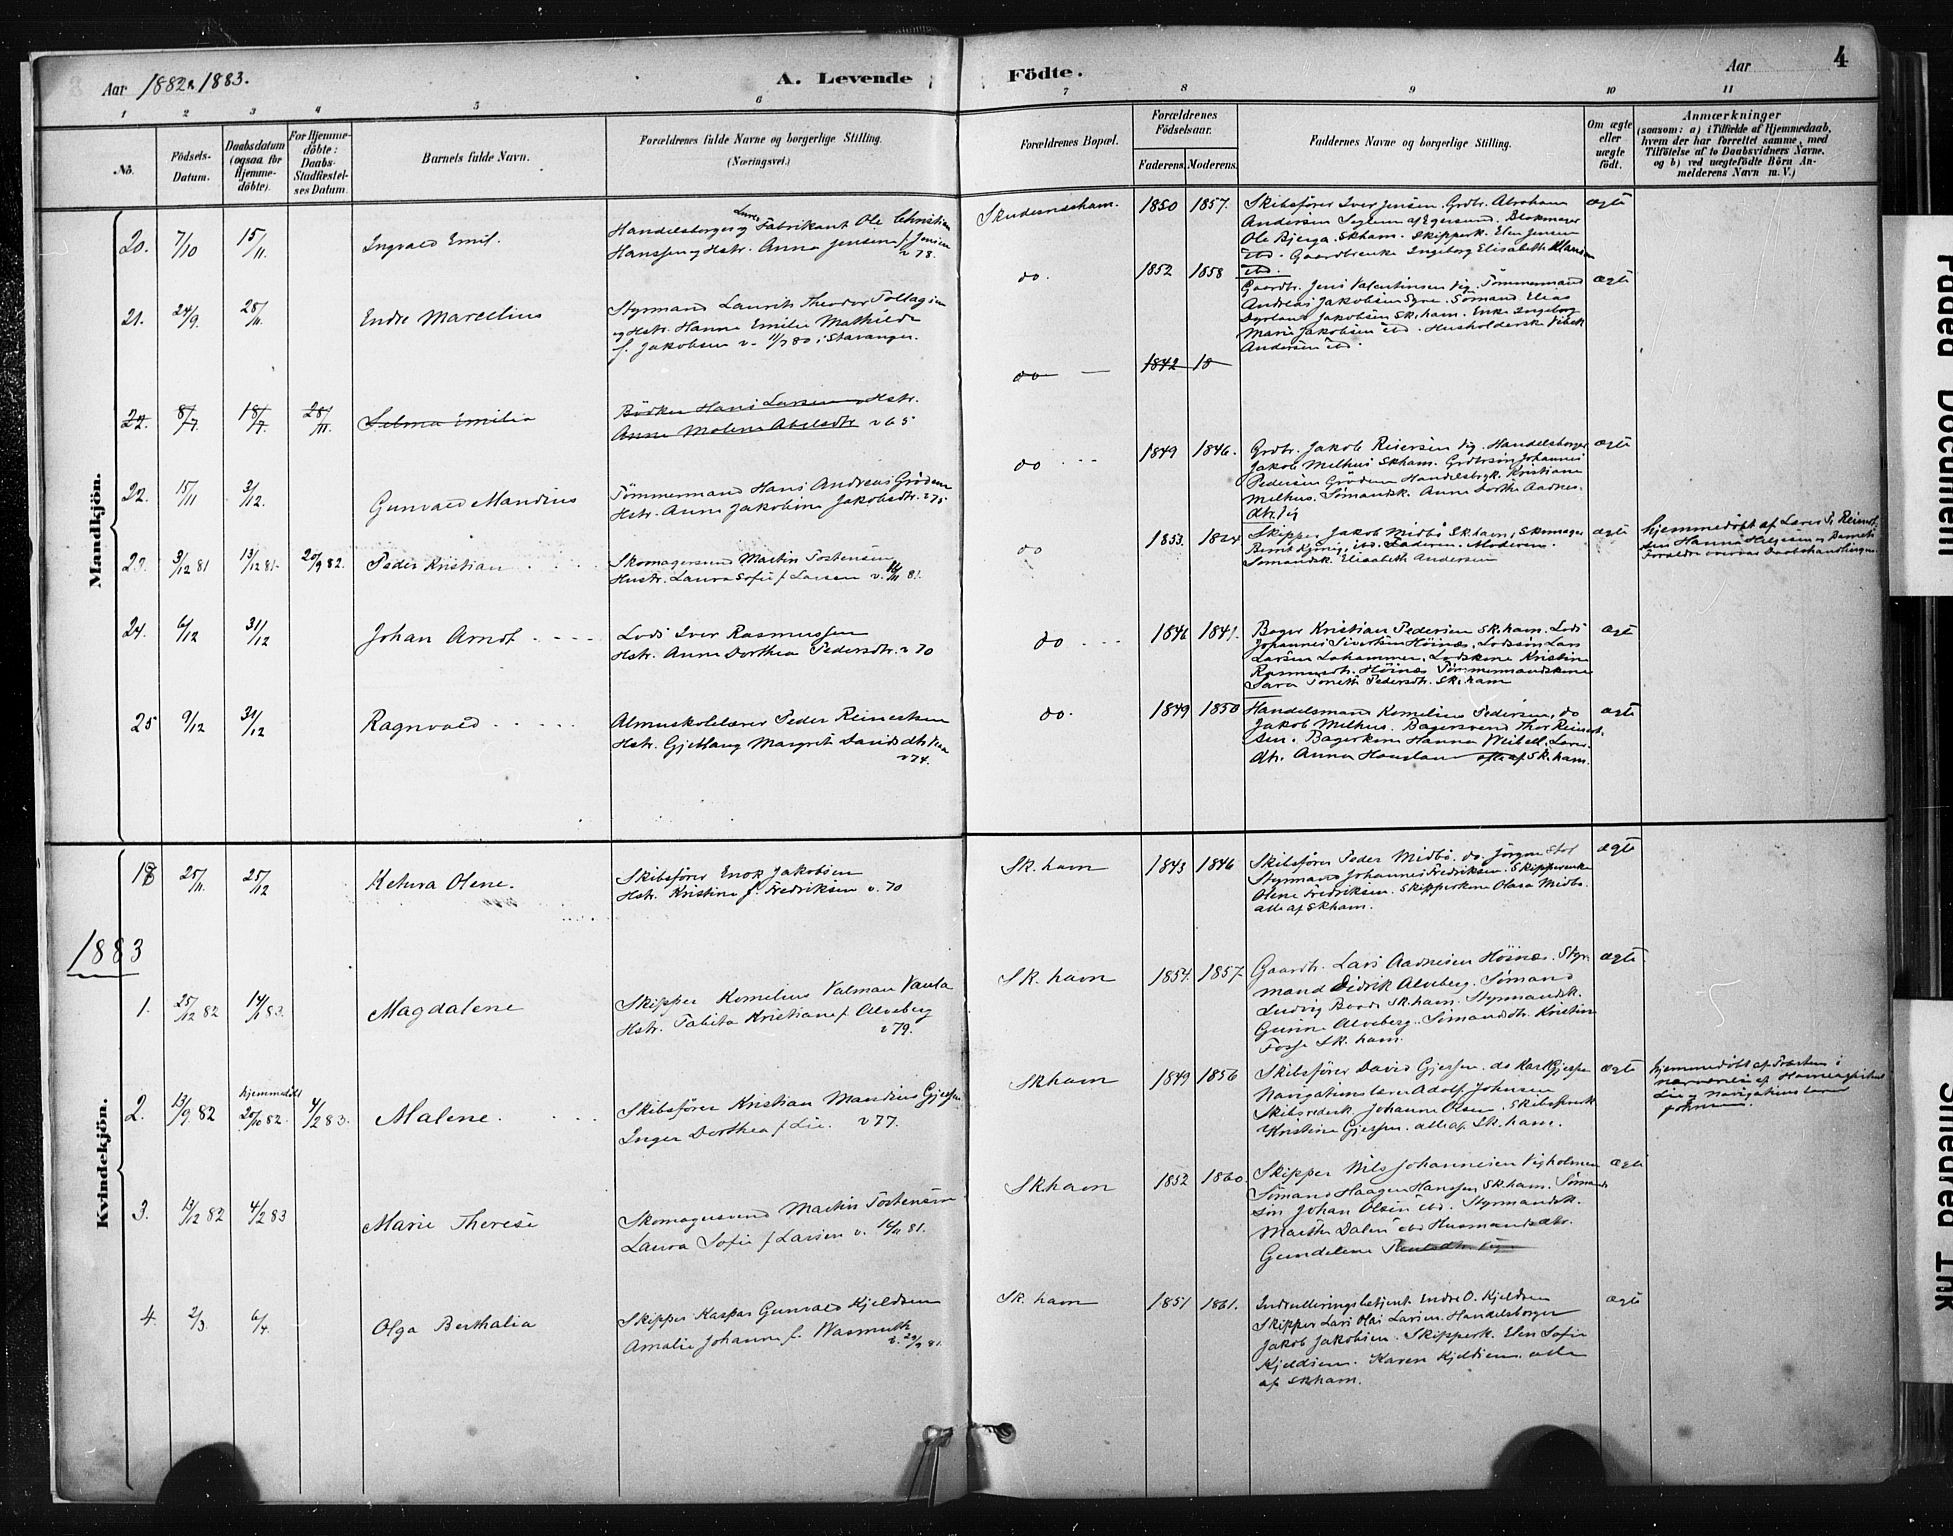 Aar 1882 & 1883.
A. Levende Födte.
Aar
4
1 2 3 4 5 6 7 8 9 10 11
No.
Födsels-Datum.
Daabsdatum (ogsaa for Hjemme-döbte).
For Hjemme-döbte: Daabs-Stadfæstel-ses Datum.
Barnets fulde Navn.
Forældrenes fulde Navne og borgerlige Stilling.
(Næringsvei.)
Forældrenes Bopæl.
Forældrenes Födselsaar.
Faderens. Moderens.
Faddernes Navne og borgerlige Stilling.
Om ægte eller uægte födt.
Anmærkninger
(saasom: a) i Tilfælde af Hjemmedaab,
hvem der har forrettet samme, med
Tilföielse af to Daabsvidners Navne,
og b) ved uægtefödte Börn An-
melderens Navn m. V.)
Mandkjön.
20. 7/10 15/11. Ingvald Emil.
Handelsborger og Fabrikant Ole Christian
Hanssen og Hstr. Anna Jensine f. Jensen
v 78.
Skudesneshavn. 1850 1857.
Skibsfører Iver Jensen. Grdbr. Abraham
Andersen Seglem af Egersund. Blokmager
Ole Bjerga. Skhavn. Skipperk. Elen Jensen
ibd. Gaardbrenke Ingeborg Elisabeth
ibd.
ægte
21. 24/9. 28/11. Endre Marcelius
Styrmand Laurits Theodor Tollagsen
og Hstr. Hanne Emilie Mathilde
f. Jakobsen v. 11/7 80 i Stavanger.
do. 1852 1858
Gaardbr. Jens Valentinsen Vig. Tømmermand
Andreas Jakobsen Syre. Sømand Elias
Dyrland Jakobsen Sk.havn. Enke Ingeborg
Marie Jakobsen ibd. Husholderske Vibek
Andersen ibd.
ægte
22. 8/7. 18/7. 28/11. Selma Emilie
Bødker Hans Larsen Hstr.
Anne Malene Abelsdtr. v 65
do 1842 18
22. 15/11 3/12. Gunvald Mandius
Tømmermand Hans Andreas Grødem
Hstr. Anne Jakobine Jakobsdtr. v 75
do 1849 1846.
Grdbr. Jakob Reiersen Vig. Handelsborger
Jakob Melhus Skhavn. Grdbrsøn Johannes
Pedersen Grødem Handelsbgk. Kristiane
Melhus. Sømandsk. Anne Dorthe Aadnes-
dtr. Vig
ægte
23. 3/12 81 13/12 81. 20/9 82. Peder Kristian
Skomagersvend Martin Tostensen
Hustr. Laura Sofie f. Larsen v. 16/11 81.
do 1853.
Skipper Jakob Midbø Sk.havn, Skomager
ibd. Faderen. Moderen.
Sømandsk. Elisabeth Andersen
ægte
Hjemmedøbt af Lærer P. Reinert-
sen Hanna Helgesen og Barnets
Forældre overvar Daabshandlingen.
24. 6/12 31/12 Johan Arndt
Lods Iver Rasmussen
Hstr. Anne Dorthea Pedersdtr. v 70
do 1846 1841.
Bager Kristian Pedersen Sk.havn. Lods
Johannes Sivertsen Høines. Lodssøn Lars
Larsen Lahammer. Lodskone Kristine
Rasmusdtr. Høines Tømmermandskone
Sara Tonette Pedersdtr. Sk.havn
ægte
25 9/12 31/12 Ragnvald
Almueskolelærer Peder Reinertsen
Hstr. Margrete Davidsdtr.
v 74.
do. 1849 1850
Handelsmand Kornelius Pedersen, do
Jakob Melhus. Bagersvend Thor Reinert-
sen. Bagerkone Hanna Lars-
dtr. Anna Haugland alle af Sk.havn.
ægte
Kvindekjön.
18 25/11. 25/12 Ketura Olene.
Skibsfører Enok Jakobsen
Hstr. Kristine f. Fredriksen v. 70
Sk.havn 1843 1846
Skibsfører Peder Midbø. do. Jørgen
Styrmand Johannes Fredriksen. Skipperenke
Olene Fredriksen. Skipperkone Olava Midbø.
alle af Skhavn.
ægte
1883
1. 25/12 82 14/1 83. Magdalene
Skipper Kornelius Valman Vaula
Hstr. Tabita Kristiane f. Alveberg
v 79.
Sk.havn 1854. 1857.
Gaardbr. Lars Aadnesen Høines. Styr-
mand Didrik Alveberg. Sømand
Ludvig Sk.havn. Styrmandsk.
Gurine Alveberg. Sømandsdtr. Kristine
Fosse Sk.havn.
ægte
2. 13/9 82 hjemmedøbt 20/10 82. 4/2 83. Malene.
Skibsfører Kristian Mandius Gjessen
Inger Dorthea f. Lie. v 77.
Skhavn 1849 1856
Skibsfører David Gjessen. do Gjessen
Navigationslærer Adolf Johnsen
Skibsrederk. Johanne Olsen. Skibsførerk.
Kristine Gjessen. alle af Sk.havn.
ægte
hjemmedøbt af Præsten i
nærværelse af
Lie og Navigationslærer
Johnsen.
3. 13/12 82 4/2 83 Marie Therese
Skomagersvend Martin Tostensen
Laura Sofie f. Larsen v. 16/11 81.
Skhavn 1852 1860.
Skipper Nils Johannesen Vigholmen
Sømand Haagen Hanssen Sk.havn. Sømands
søn Johan Olsen ibd. Styrmandsk.
Marthe Dalen ibd Husmandsdtr.
Gundelene
ægte
4. 2/3. 6/4. Olga Berthalia
Skipper Kaspar Gunvald Kjeldsen
Amalie Johanne f. Wasmuth
v. 29/9 81.
Sk.havn 1851 1861.
Indrulleringsbetjent Endre O. Kjeldsen
Skipper Lars Olai Larsen. Handelsborger
Jakob Jakobsen. Skipperk. Elen Sofie
Kjeldsen. Karen Kjeldsen. alle
af Skhavn.
ægte
Faded Document
Smeared Ink